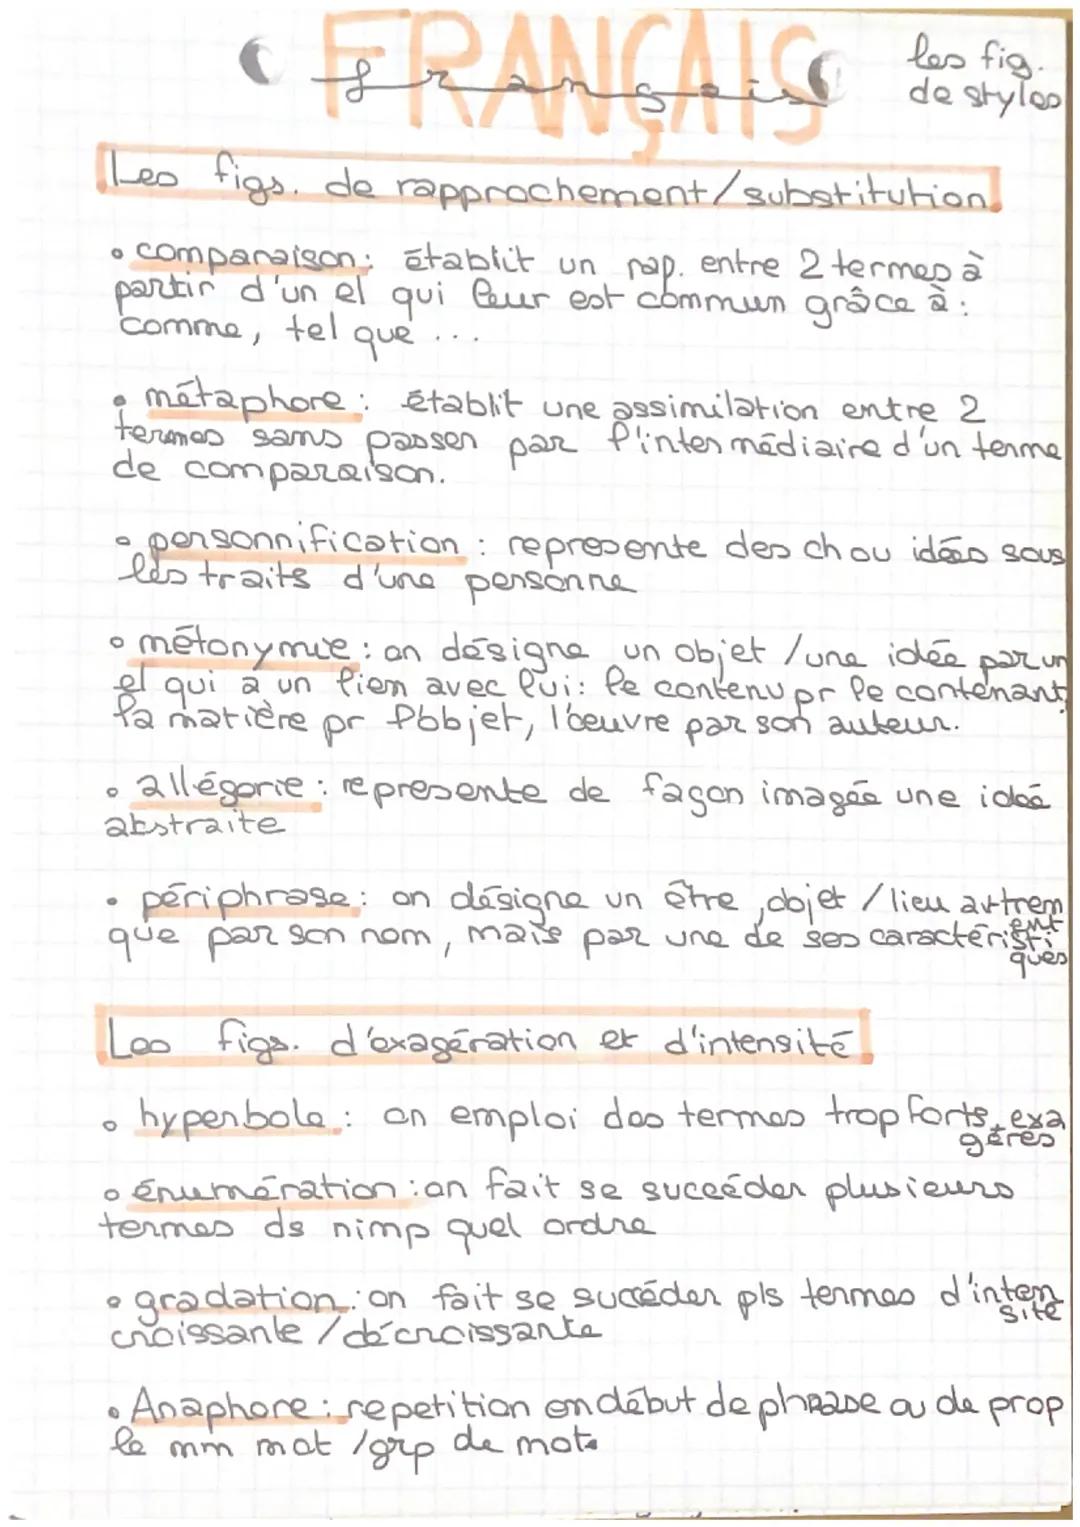 FRANÇAIS
français
les fig.
de styles
Les figs. de rapprochement/substitution
• comparaison : établit un rap. entre 2 termes à
partir d'un el qui leur est commun grâce à :
comme, tel que ...
• métaphore : établit une assimilation entre 2
termes sans passer par l'intermédiaire d'un terme
de comparaison.
• personnification : represente des ch ou idées sous
les traits d'une personne
• métonymie : on désigne un objet / une idée par un
el qui a un lien avec lui : le contenu pr le contenant,
la matière pr l'objet, l'œuvre par son auteur.
• allégorie : represente de façon imagée une idée
abstraite
• périphrase : on désigne un être, objet / lieu autrement
que par son nom, mais par une de ses caractéristiques
Les figs. d'exagération et d'intensité
• hyperbole : on emploi des termes trop forts, exagérés
• énumération : on fait se succéder plusieurs
termes ds nimp quel ordre
• gradation : on fait se succéder pls termes d'intensité
croissante / décroissante
• Anaphore : repetition en début de phrase ou de prop
le mm mot / grp de mots